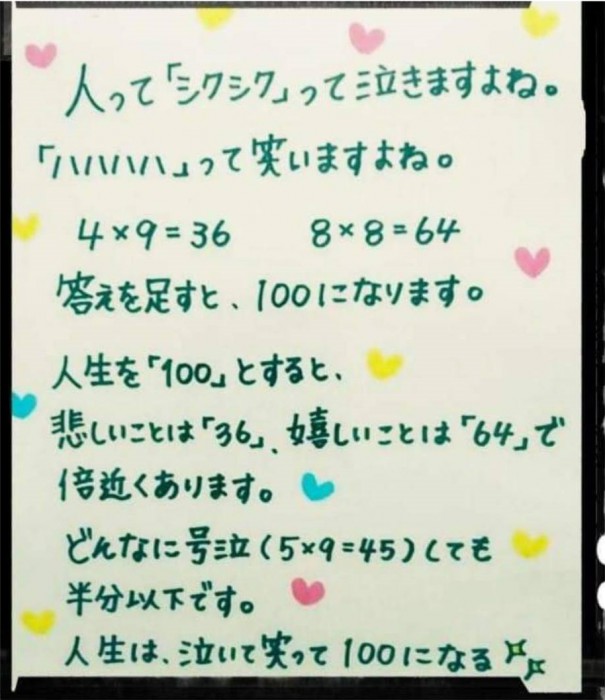 人って「シクシク」って泣きますよね。
「ハハハハ」って笑いますよね。
4×9=36 8×8=64
答えを足すと、100になります。
人生を「100」とすると、
悲しいことは「36」、嬉しいことは「64」で
倍近くあります。
どんなに号泣(5×9=45)しても
半分以下です。
人生は、泣いて笑って100になる